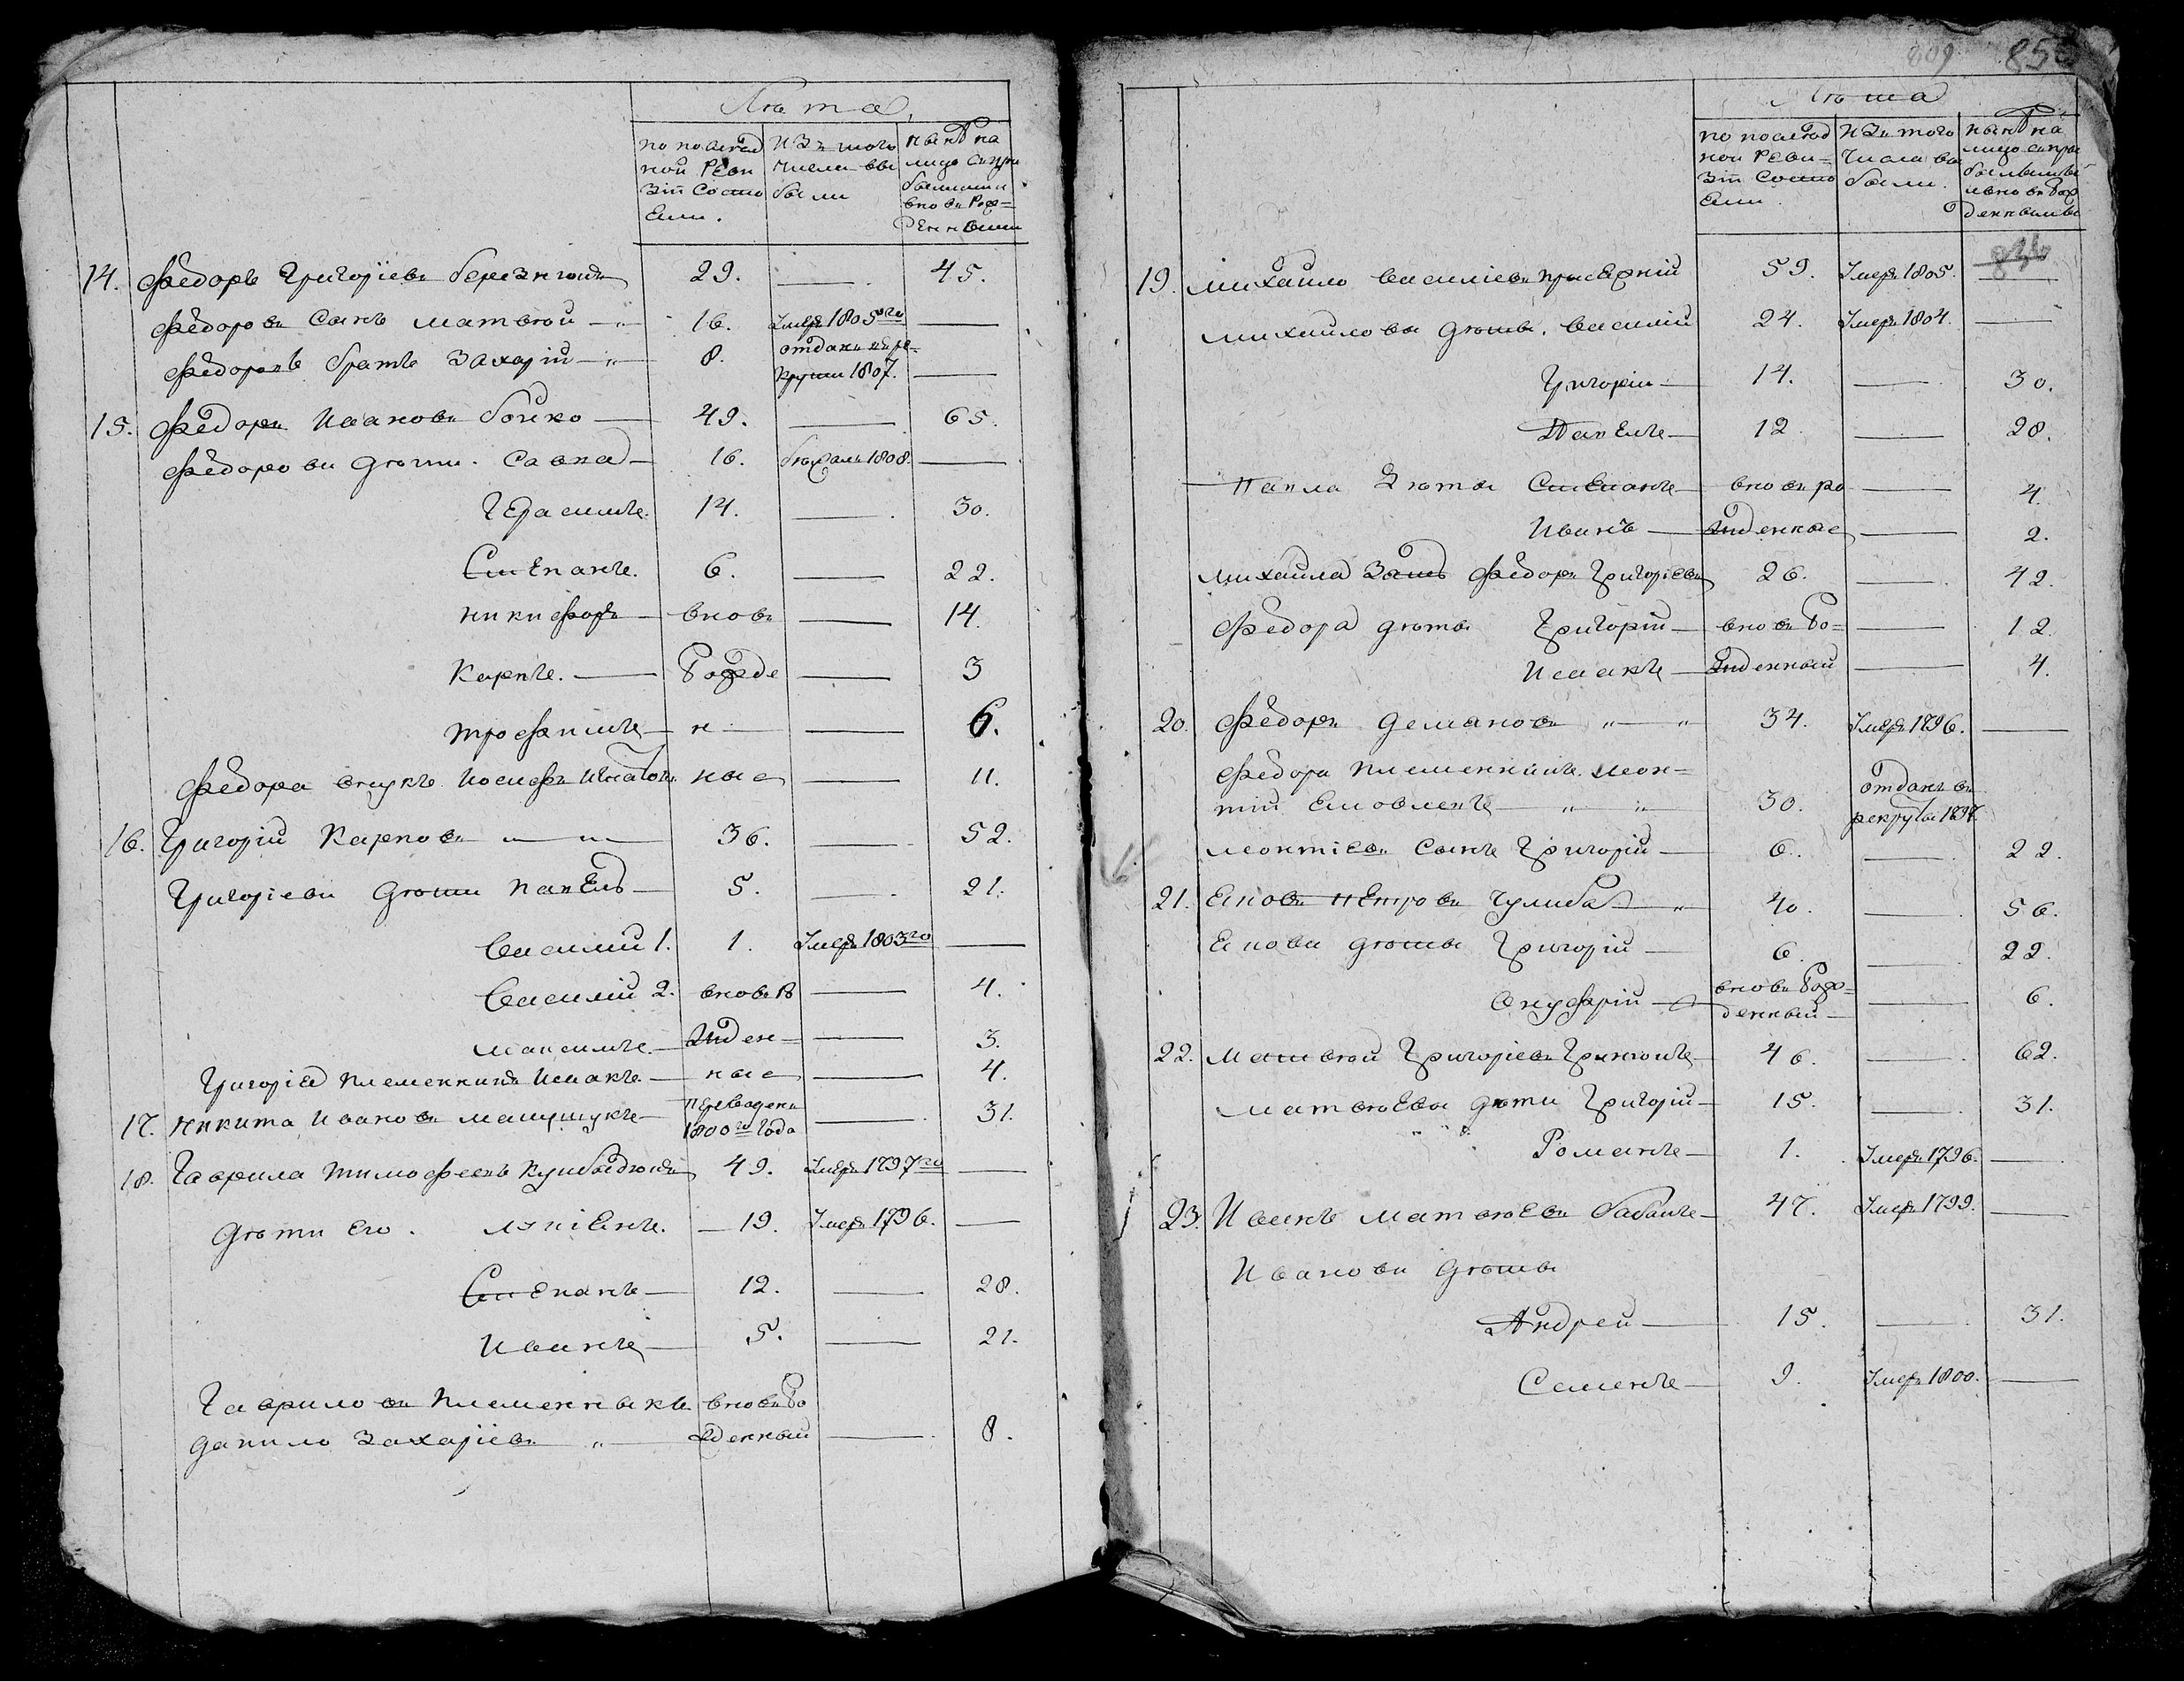 Лѣта
по послѣд ней Реви зіи Состо яли. | изъ того числа вы были | нынѣ на лицо съ при былыми и вновь Рож= Денными
14. Федоръ Григоріевъ 29. — 45.
Федоровъ Сынъ Матвѣй — 16. Умеръ 1805го —
Федоровъ братъ Захарій — 8. отданъ въ ре= круты 1807. —
15. Федоръ Ивановъ бойко — 49. — 65.
Федоровы дѣти. Савка — 16. бѣжалъ 1808. —
Герасимъ. 14. — 30.
Степанъ. 6. — 22.
Никифоръ — вновь — 14.
Карпъ. — Рожде — 3
Трофимъ — н — 6.
Федора внукъ Иосифъ ные — 11.
16. Григорій Карповъ — 36. — 52.
Григоріевы дѣти Павелъ — 5. — 21.
Василий 1. 1. Умеръ 1803го —
Василій 2. вновь Ро — 4.
Максимъ. — жден= — 3.
Григорія племенникъ Исакъ. — ные — 4.
17. Никита Ивановъ — Переведенъ 1800го года — 31.
18. Гаврила Тимофеевъ 49. Умеръ 1797го —
Дѣти Его. — 19. Умеръ 1796. —
Степанъ — 12. — 28.
Иванъ — 5. — 21.
Гавриловъ племенныкъ вновь Ро
Данило Захаріевъ „ — жденный — 8.
809 855
Лѣта
по послѣд ней Реви= зіи Состо яли. | изъ того Числа вы были. | нынѣ на лицо съ при былыми и вновь Рож денными
19. Михайло Василіевъ 59. Умеръ 1805. —
Михайловы дѣти. Василій 24. Умеръ 1804. —
Григорій — 14. — 30.
Павелъ — 12. — 28.
Павла дѣти Степанъ — вновь ро — 4.
Иванъ — жденные — 2.
Михайла Зять Федоръ Григоріевъ 26. — 42.
Федора дѣти Григорій — вновь Ро= — 12.
Исакъ — жденный — 4.
20. Федоръ Демановъ „ — „ 34. Умеръ 1796. —
Федора племенникъ. Леон=
тій — „ „ 30. Отданъ въ рекруты 1797.
Леонтіевъ Сынъ Григорій — 6. — 22.
21. Петровъ — „ 40. — 56.
дѣти Григорій — 6. — 22.
Онуфрій — вновь Рож= денный — — 6.
22. Матвѣй Григоріевъ — 46. — 62.
Матвѣевы дѣти Григорій — 15. — 31.
Романъ — 1. Умеръ 1796. —
23. Иванъ Матвѣевъ — 47. Умеръ 1799. —
Ивановы дѣти
Андрей — 15. — 31.
Семенъ — 9. Умеръ 1800. —